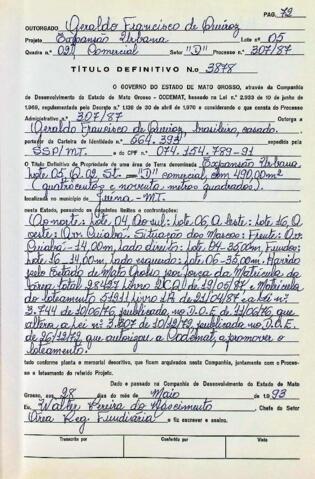 PAG. 72
OUTORGADO Geraldo Francisco de Queiroz
Projeto Expansão Urbana Lote nº 05
Quadra n.º 02, Comercial Setor "D" Processo nº 307/87
TÍTULO DEFINITIVO N.º 3878
O GOVERNO DO ESTADO DE MATO GROSSO, através da Companhia
de Desenvolvimento do Estado de Mato Grosso - CODEMAT, baseado na Lei n.º 2.933 de 10 de junho de
1.969, regulamentada pelo Decreto n.º 1.138 de 30 de abril de 1970 e considerando o que consta do Processo
Administrativo n.º 307/87
Geraldo Francisco de Queiroz, brasileiro, casado.
portador da Carteira de Identidade n.º 564.393 expedida pela
SSP/MT. e do CPF n.º 074.154.789-91
O Título Definitivo de Propriedade de uma área de Terra denominada Expansão Urbana
Lote 05, Q. 02 St. "D" comercial, com 490,00m²
(Quatrocentos e noventa metros quadrados).
localizada no município de Juina-MT.
neste Estado, possuindo os seguintes limites e confrontações:
Ao norte: lote 04, Ao sul: lote 06, A leste: lote 16, A
oeste: Av. Cuiabá. Situação dos Marcos: Frente: Av.
Cuiabá - 14,00m, lado direito: lote 04-35,00m, Fundos:
Lote 16 - 14,00m, lado esquerdo: lote 06-35,00m. Havido
pelo Estado de Mato Grosso por força da Matrícula da
área total 28427 Livro 2CQ de 12/05/87, e Matrícula
do loteamento 51311 Livro 1A de 21/04/87 e a Lei nº
3.744 de 10/06/76 publicado, no D.O.E de 11/06/76 que
altera a Lei nº 3.307 de 10/12/72 publicado no D.O.E.
de 26/12/72 que autorizou a Codemat, a promover o
loteamento.
tudo conforme planta e memorial descritivo, que ficam arquivados nesta Companhia, juntamente com o Proces-
so e loteamento do referido Projeto.
Dado e passado na Companhia de Desenvolvimento do Estado de Mato
Grosso, aos 28 dias do mês de Maio de 1.993
Eu, Walter Pereira do Nascimento, Chefe do Setor
Area Reg. Fundiária o fiz escrever e assino.
Transcrito por Conferido por Visto